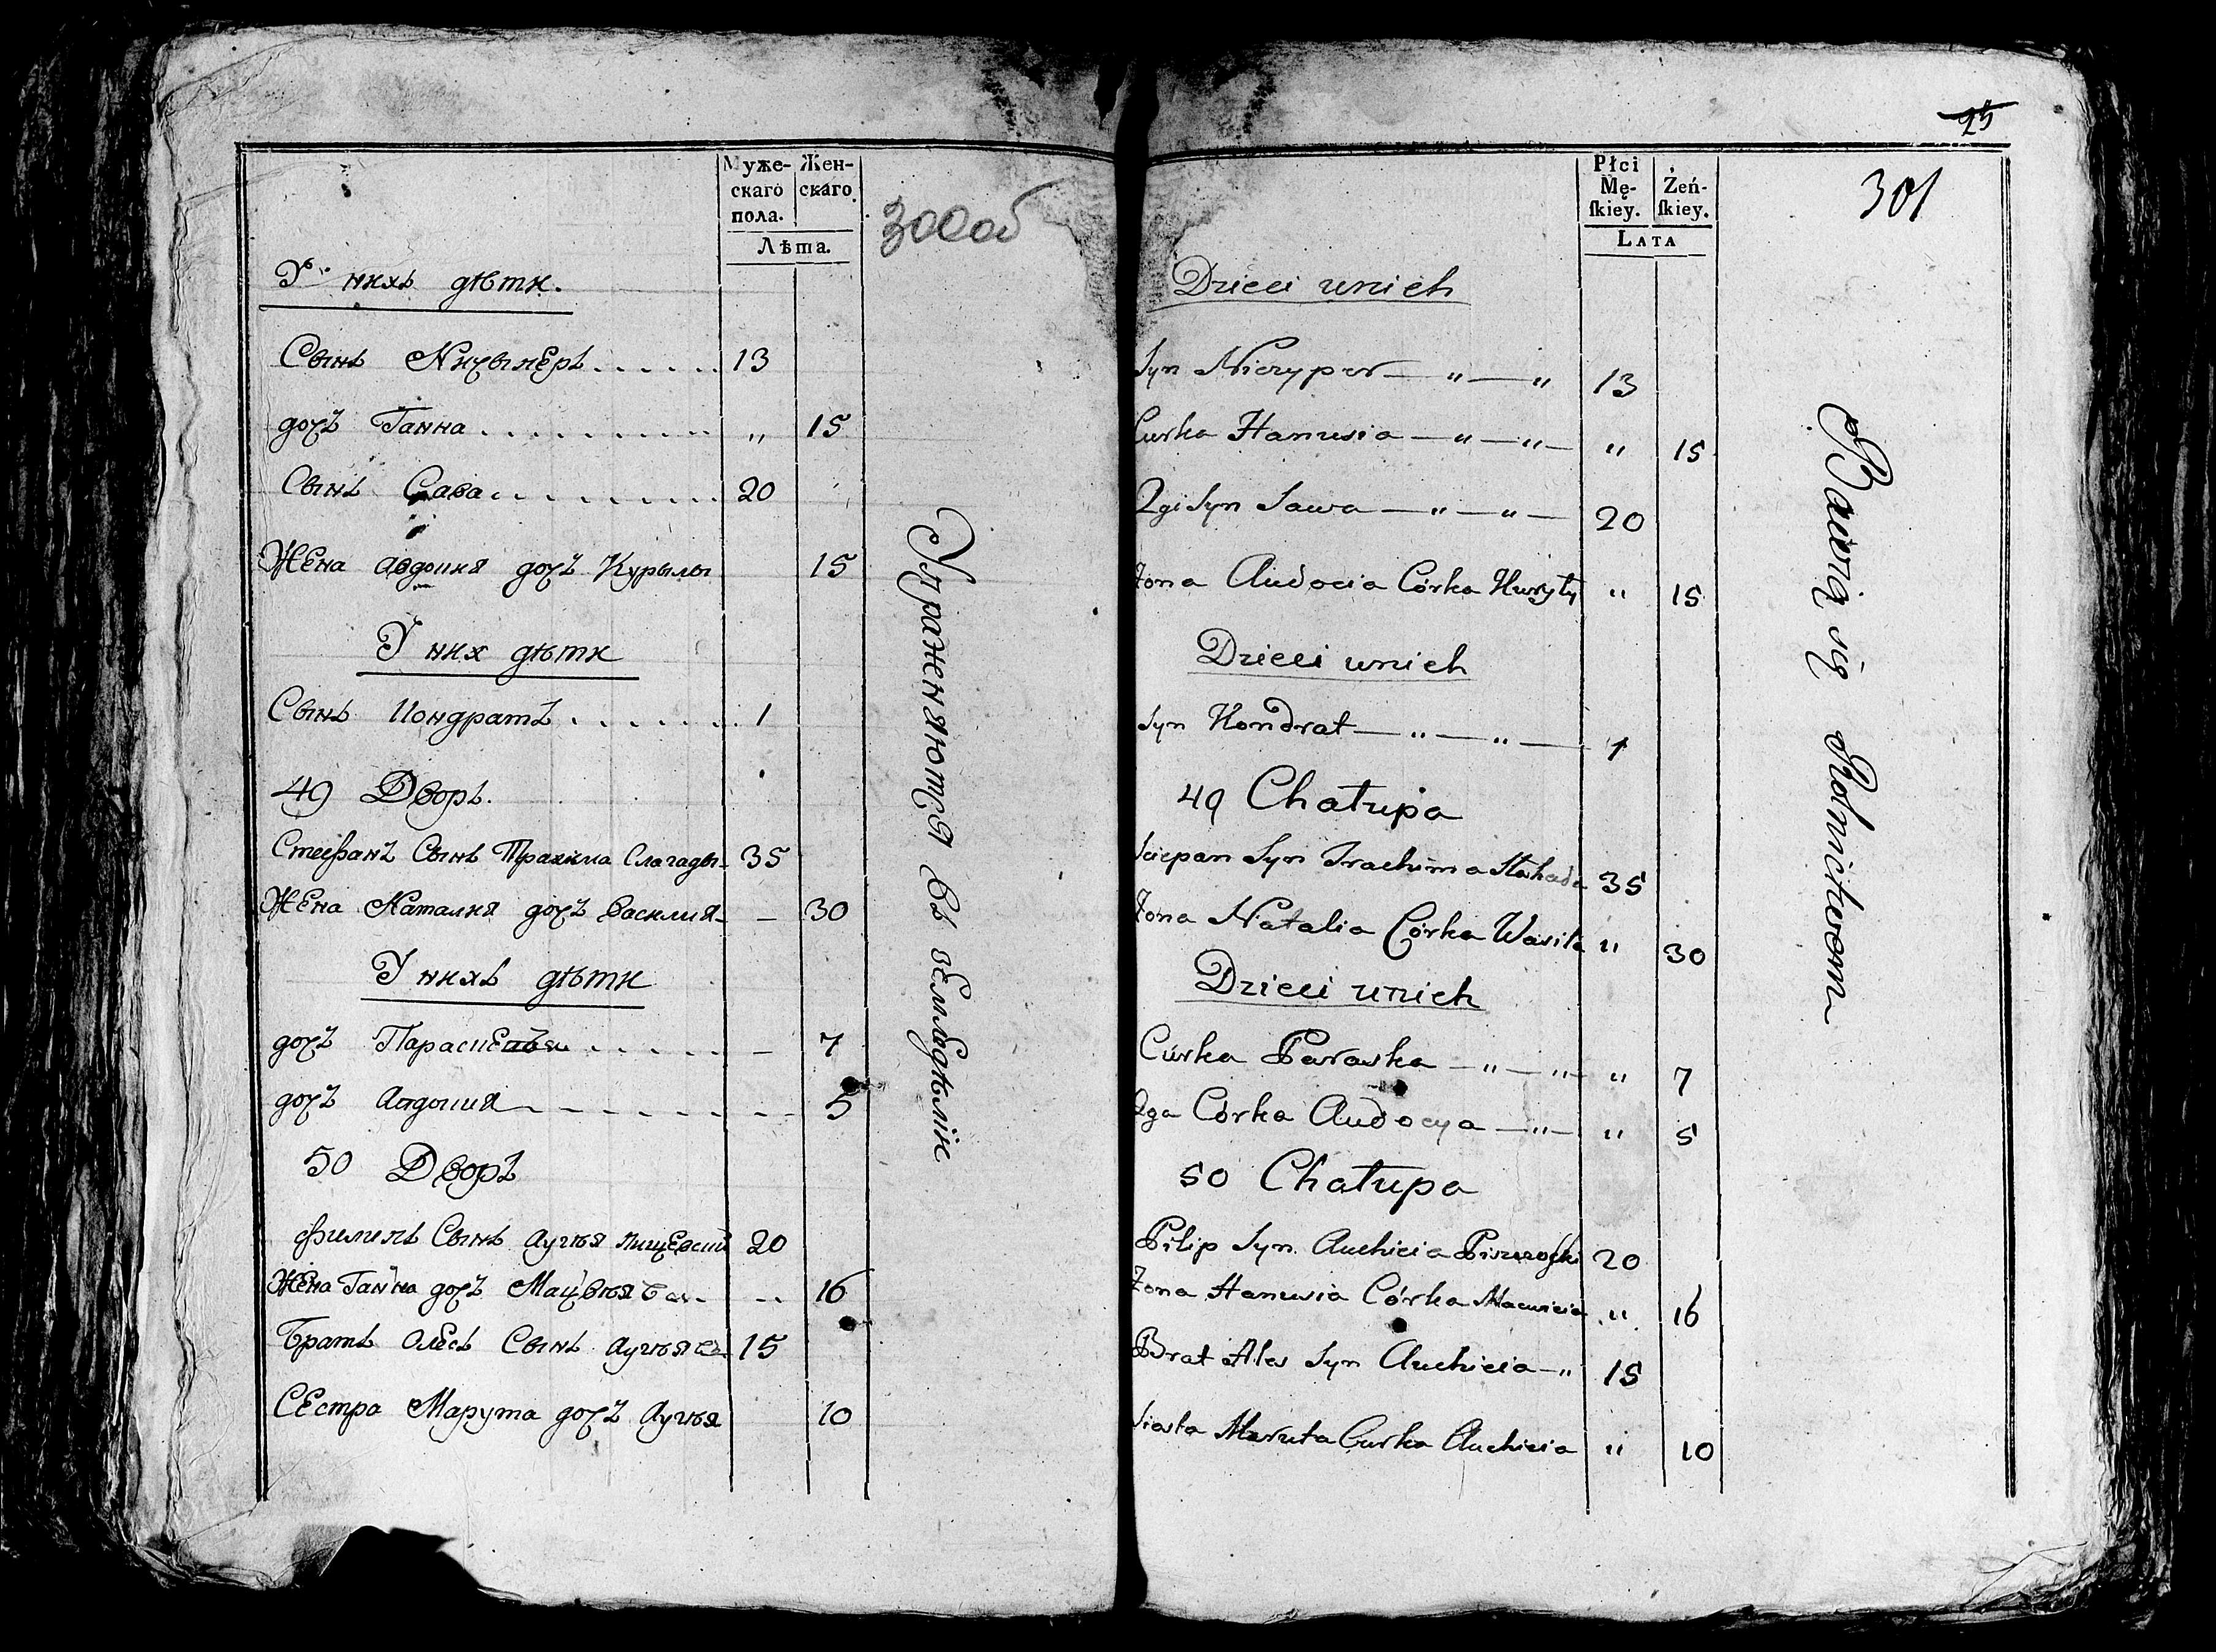 Муже-
скаго
пола.
Жен-
скаго.
Лѣта.
300об
У нихъ дѣти.
Сынъ Ничыперъ 13
дочъ Ганна " 15
Сынъ Сава 20
Жена Авдокия дочъ Курылы 15
У них дѣти
Сынъ Кондратъ 1
49 Дворъ.
Стефанъ Сынъ Трахима 35
Жена Наталия дочъ Василия — 30
У нихъ дѣти
дочъ — 7
дочъ 5
50 Дворъ
Филипъ Сынъ 20
Жена Ганна дочъ Мацвѣя 16
Братъ Олесь Сынъ 15
Сестра Марута дочъ 10
Упражняются въ земледѣліи
25
Płci
Mę-
ſkiey.
Żeń-
ſkiey.
Lata
301
Dzieci unich
Syn Niczypor — " — " 13
Curka Hanusia — " — " — " 15
2gi Syn Sawa — " — " — 20
Żona Audocia Córka Kuryły " 15
Dzieci unich
Syn Kondrat — " — " — 1
49 Chałupa
Sciepan Syn Trachima 35
Żona Natalia Córka Wasila " 30
Dzieci unich
Cúrka Paraska — " — " — " 7
2ga Córka Audocya — " — " 5
50 Chałupa
Pilip Syn Auchicia 20
Żona Hanusia Córka Macwieia " 16
Brat Ales Syn Auchicia — " 15
Siostra Maruta Curka Auchicia " 10
Bawią się Rolnictwem